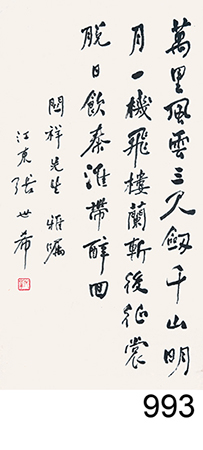 萬里風雲三尺劔千山明
月一機飛樓蘭斬後征裳
脫日飲秦淮帶醉回
開祥先生雅囑
江東張世希
993